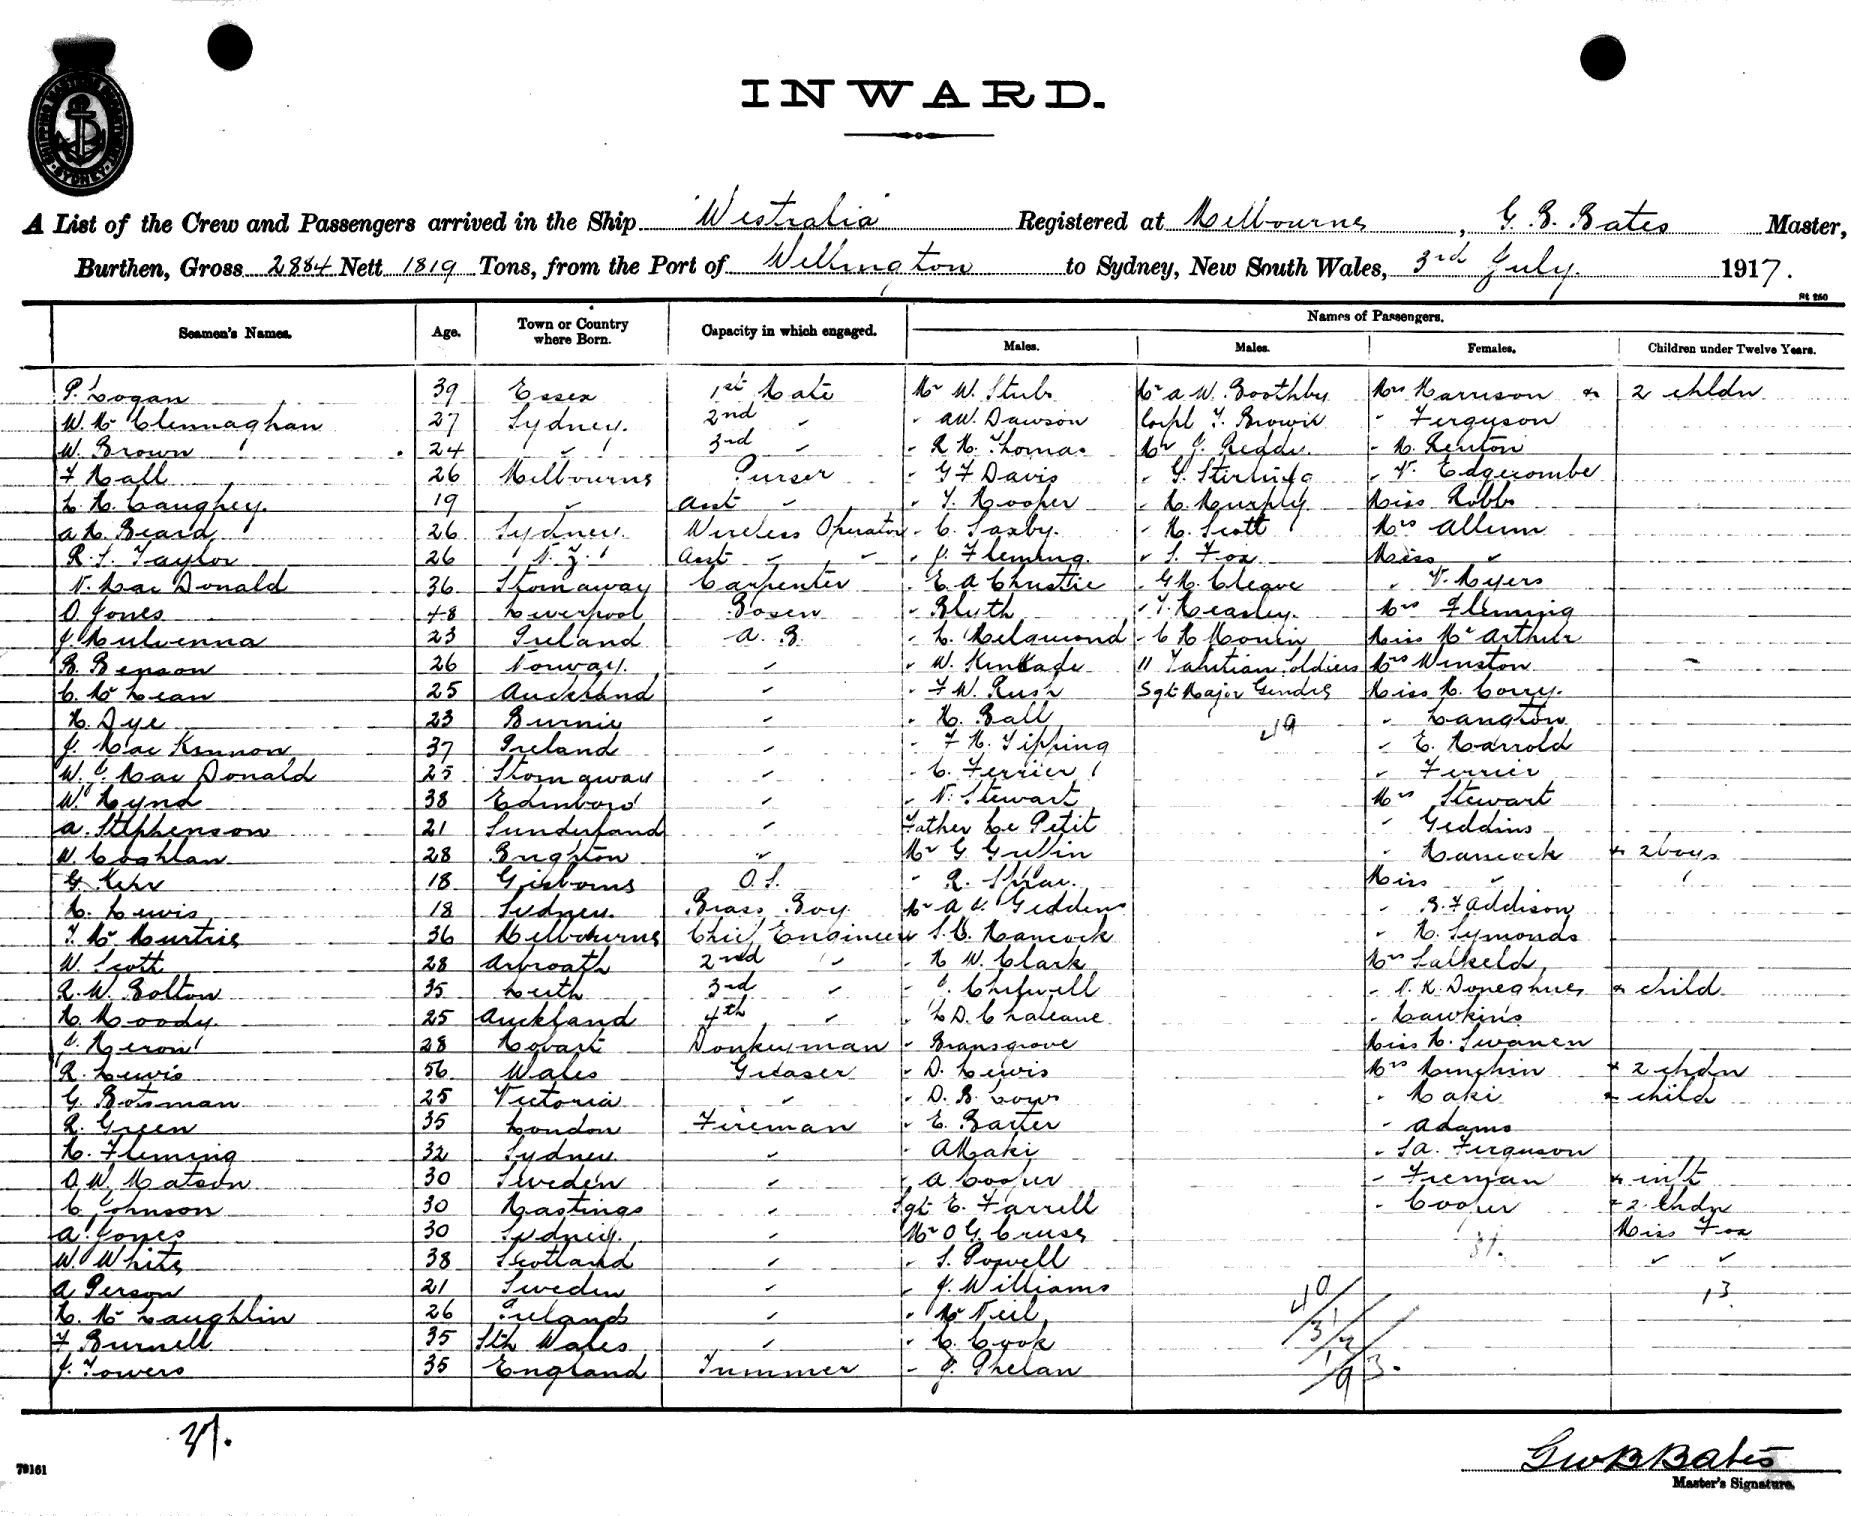 SHIPPING MASTER'S DEPARTMENT SYDNEY
INWARD.
A List of the Crew and Passengers arrived in the Ship "Westralia" Registered at Melbourne, G. B. Bates Master,
Burthen, Gross 2884 Nett 1819 Tons, from the Port of Wellington to Sydney, New South Wales, 3rd July. 1917.
St 260
Names of Passengers.
Seamen's Names. Age. Town or Country where Born. Capacity in which engaged. Males. Males. Females. Children under Twelve Years.
P. Logan 39 Essex 1st Mate Mr W. Stubs Mr A W. Boothby Mrs Harrison & 2 chldn
W. Mc Clennaghan 27 Sydney. 2nd " " AW. Dawson Corpl T. Brown " Ferguson
W. Brown 24 " 3rd " " R H. Thomas Mr J. " H. Renton
F Hall 26 Melbourne Purser " G F Davis " G. Stirling " V. Edgecombe
L. Mc Caughey. 19 " Asst " " T. Hooper " H. Murphy. Miss Robbs
A H. Beard 26 Sydney. Wireless Operator " C. Saxby. " H. Scott Mrs Allum
R. S. Taylor 26 N. Z. Asst " " " J. Fleming. " S. Fox Miss "
N. Mac Donald 36 Stornaway Carpenter " E. A Christie " G H. Cleave " V. Myers
O Jones 48 Liverpool Bosen " Bluth " T. Heasley. Mrs Fleming
J. Mulvenna 23 Ireland A. B. " L. " C H Miss Mc Arthur
B. Benson 26 Norway. " " W. Kinkade 11 Tahitian Soldiers Mrs Winston
C. Mc Lean 25 Auckland " " F W. Rush Sgt Major Gendre Miss M. Corry.
H. Dye 23 Burnie " " H. Ball 49 " Langton
J. Mac Kinnon 37 Ireland " " F H. Tipping " E. Harrold
W. J. Mac Donald 25 Stornaway " " C. Ferrier " Ferrier
W. Hynd 38 Edinboro' " " N. Stewart Mrs Stewart
A. Stephenson 21 Sunderland " Father Le Petit " Geddins
W. Coghlan 28 Brighton " Mr G. " Hancock & 2 boys
G. Kehr 18 Gisborne O.S. " R. Miss "
H. Lewis 18 Sydney. Brass Boy Mr A V. Geddens " B. F Addison
T. Mc Murtrie 36 Melbourne Chief Engineer " S. C. Hancock " H. Symonds
W. Scott 28 Arbroath 2nd " " H W. Clark Mrs Salkeld
R. W. Bolton 35 Leith 3rd " " " N. K. Doneghue & child
H. Moody. 25 Auckland 4th " " L D. " Hawkins
J. Heron 28 Hobart Donkeyman " Bransgrove Miss H. Swanen
R. Lewis 56 Wales Greaser " D. Lewis Mrs Minchin & 2 chdn
G. Botsman 25 Victoria " " D. B. " Maki & child
R. Green 35 London Fireman " E. Barter " Adams
H. Fleming 32 Sydney " " A Maki " S A. Ferguson
O. W. Matson 30 Sweden " " A Cooper " Freman & inft
C Johnson 30 Hastings " Sgt E. Farrell " Cooper & 2 Chdn
A. Jones 30 Sydney. " Mr O G. Cruse 31. Miss Fox
W. White 38 Scotland " " S. Powell " "
A Person 21 Sweden " " J. Williams 13
H. Mc Laughlin 26 Ireland " " Mc Neil
F Burnell 35 Sth Wales " " C. Cook
J. Towers 35 England Trimmer " J. Phelan
37.
Geo B Bates
Master's Signature.
79161